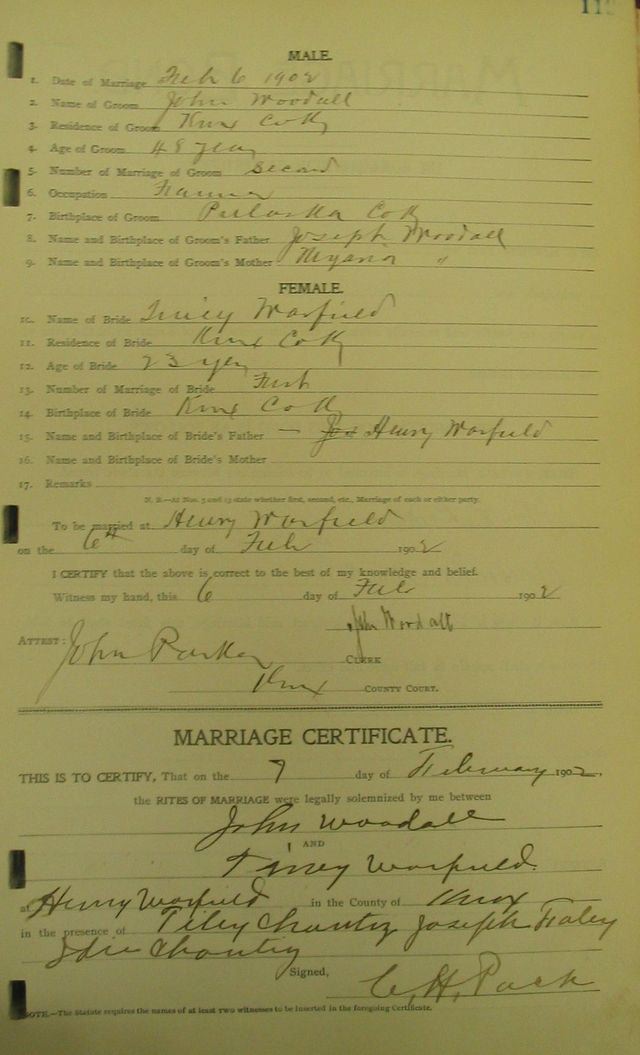 MALE.
1. Date of Marriage Feb 6 1902
2. Name of Groom John Woodall
3. Residence of Groom Knox Co Ky
4. Age of Groom 48 years
5. Number of Marriage of Groom Second
6. Occupation Farmer
7. Birthplace of Groom Pulaski Co Ky
8. Name and Birthplace of Groom's Father Joseph Woodall
9. Name and Birthplace of Groom's Mother "
FEMALE.
10. Name of Bride Warfield
11. Residence of Bride Knox Co Ky
12. Age of Bride 23 yers
13. Number of Marriage of Bride First
14. Birthplace of Bride Knox Co Ky
15. Name and Birthplace of Bride's Father — Henry Warfield
16. Name and Birthplace of Bride's Mother
17. Remarks
N. B.—At Nos. 5 and 13 state whether first, second, etc., Marriage of each or either party.
To be married at Henry Warfield
on the 6th day of Feb 1902
I CERTIFY that the above is correct to the best of my knowledge and belief.
Witness my hand, this 6 day of Feb 1902
John Woodall
ATTEST: John Parker CLERK
Knox COUNTY COURT.
MARRIAGE CERTIFICATE.
THIS IS TO CERTIFY, That on the 7 day of February 1902.
the RITES OF MARRIAGE were legally solemnized by me between
John Woodall
AND
Warfield.
at Henry Warfield in the County of Knox
in the presence of Joseph
Signed, C. H. Pack
NOTE.—The Statute requires the names of at least two witnesses to be inserted in the foregoing Certificate.